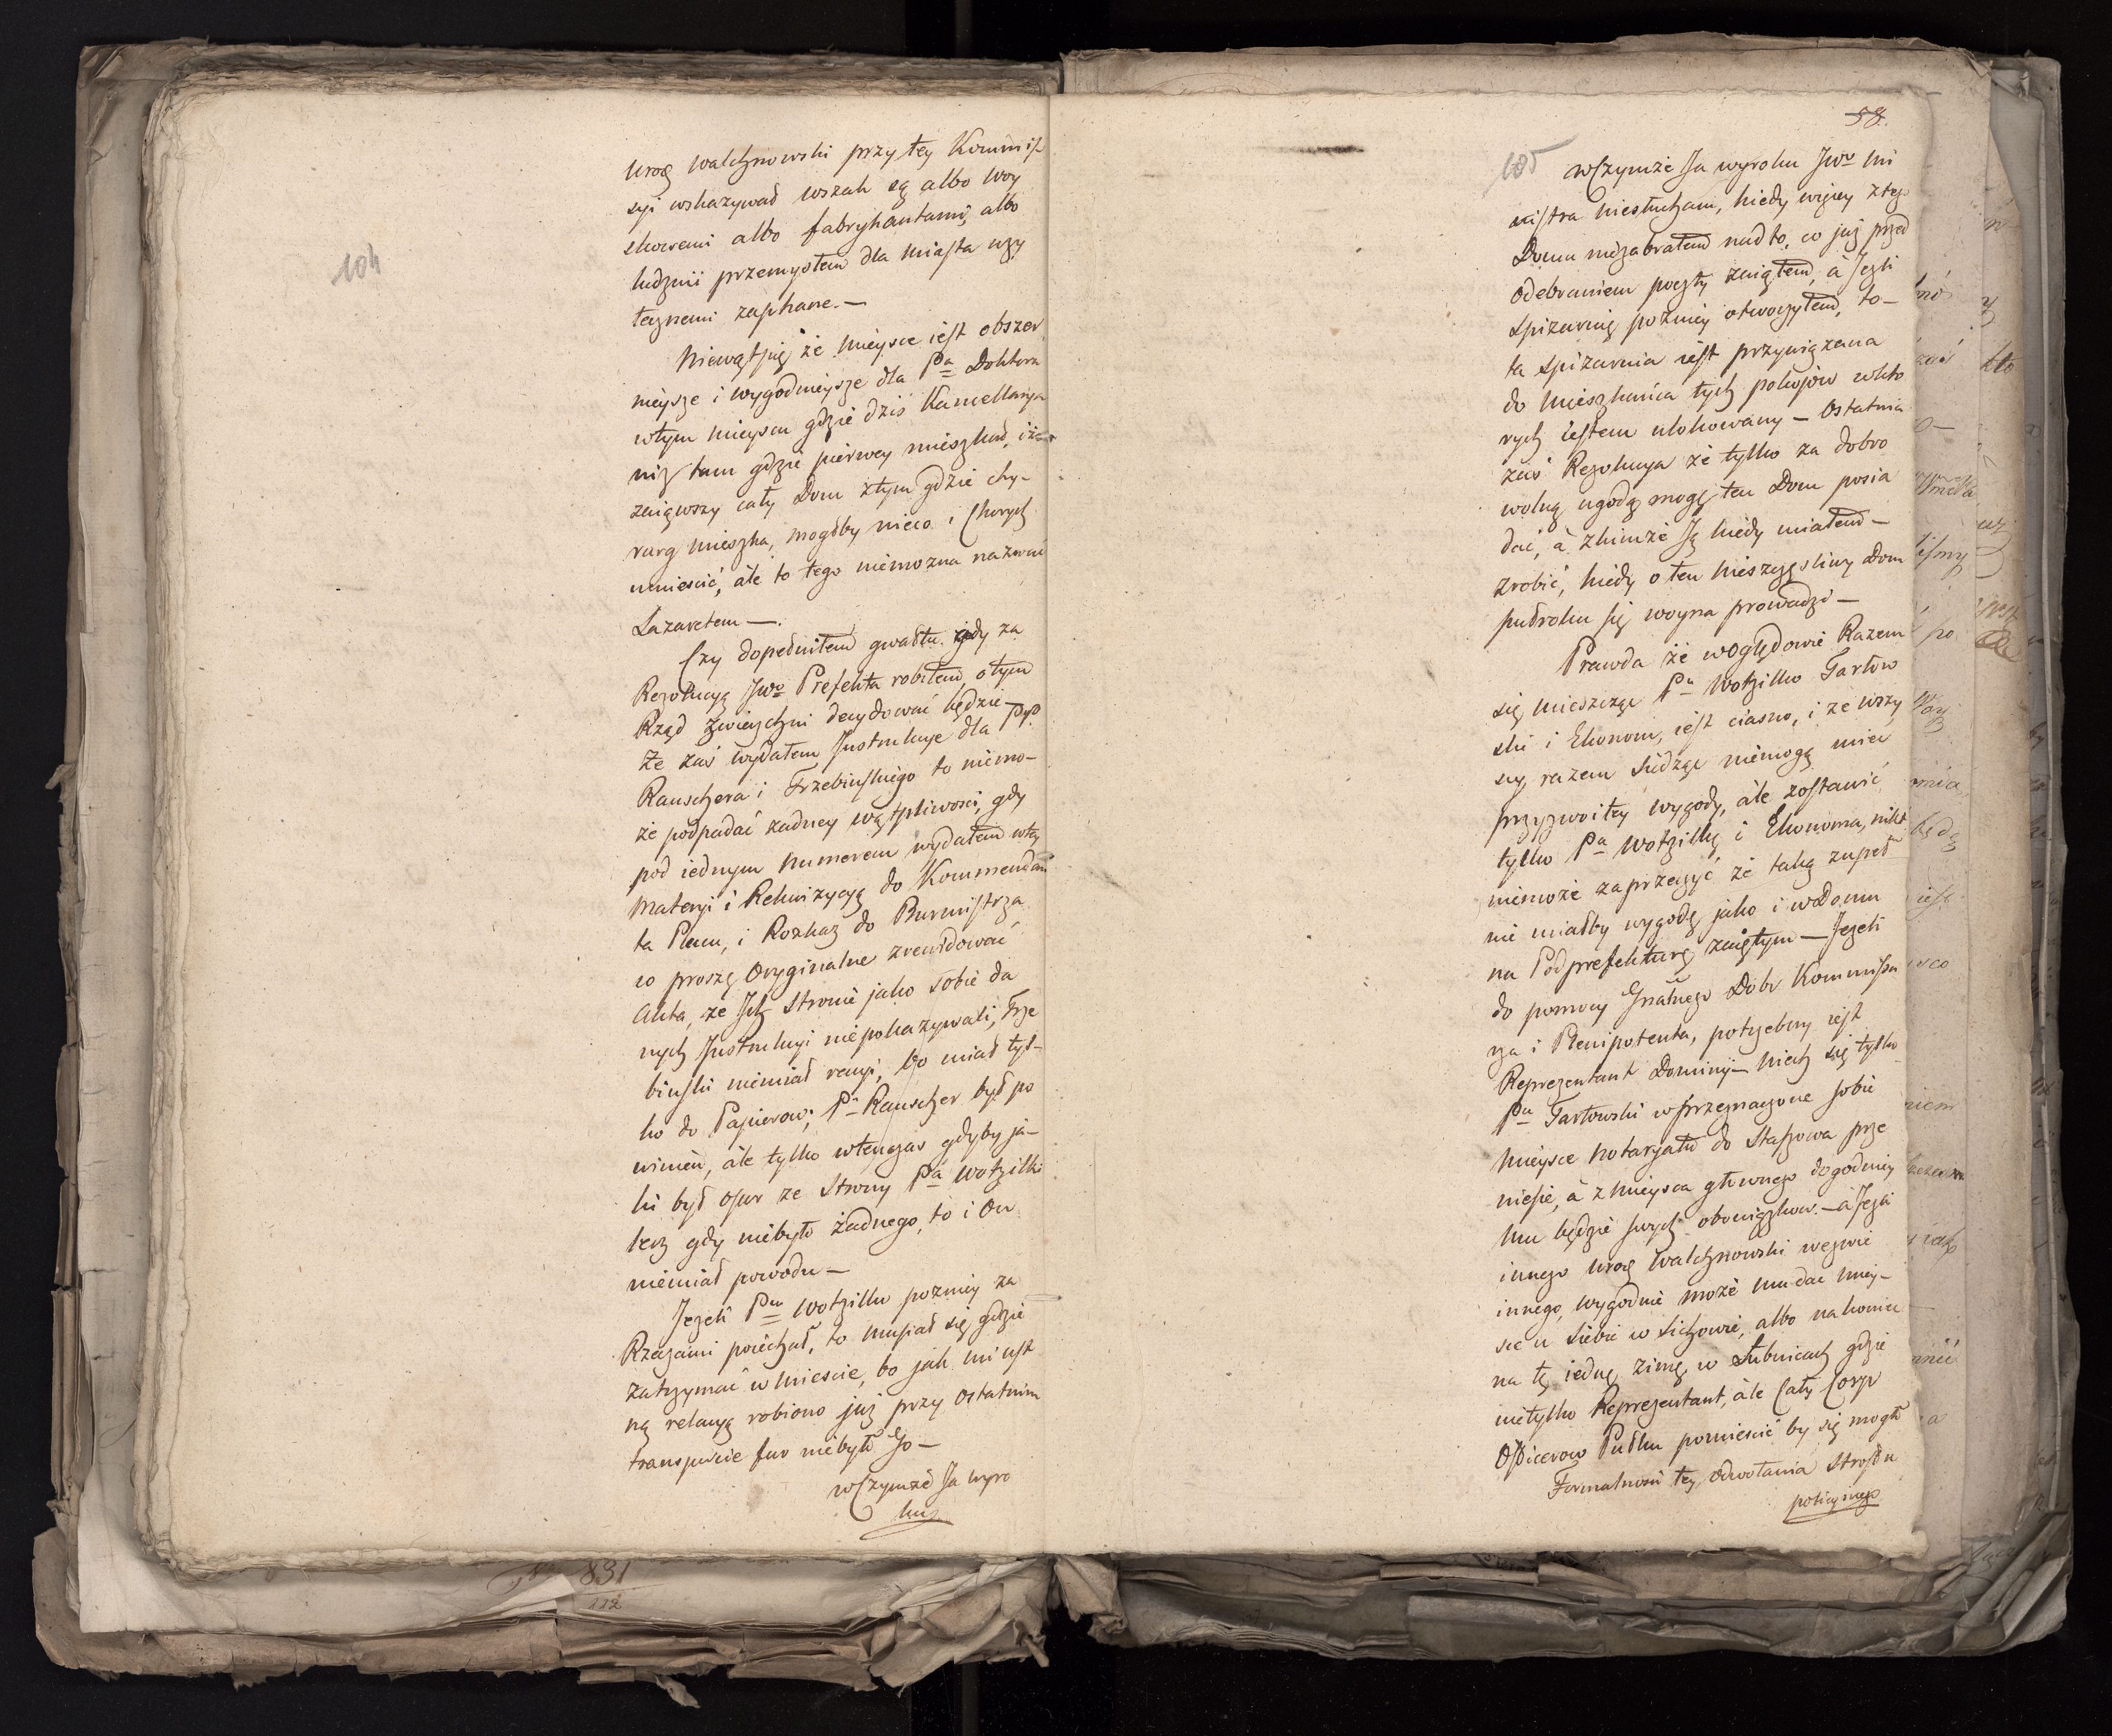 104
Uroż Walchnowski przy tey Kommis-
syi wskazywał wszak są albo Woy
skowemi albo fabrykantami, albo
ludzmi przemysłem dla Miasta uży
tecznemi zaphane.—
Niewątpię że Mieysce iest obszer
nieysze i wygodnieysze dla Pa Doktora
wtym Mieyscu gdzie dziś Kancellarya
niż tam gdzie pierwey mieszkał, i że
zaiąwszy cały Dom ztym gdzie chy-
rurg mieszka, mogłby nieco i Chorych
umieścić, ále to tego niemożna nazwać
Lazaretem —.
Czy dopełniłem gwałtu gdy za
Rezolucyą JWo Prefekta robiłem, otym
Rząd Zwierzchni decydować będzie —
Że zaś wydałem Instrukcye dla PP.
Rauschera i Trzebinskiego to niemo-
że podpadać żadney wątpliwości, gdy
pod iednym Numerem wydałem wtey
Materyi i Rekwizycyą do Kommendan
ta Placu, i Rozkaz do Burmistrza
co proszę Oryginalne zrewidować
Akta, że Ich Stronie jako sobie da
nych Instrukcyi niepokazywali, Trze
binski niemiał racyi, bo miał tyl-
ko do Papierow; Pn Rauscher był po
winien, ále tylko wtenczas gdyby ja-
ki był opur ze Strony Pa Wotzilki
lecz gdy niebyło żadnego, to i On
niemiał powodu —
Jeżeli Pn Wotzilku pozniey za
Rzeczami poiechał, to musiał się gdzie
zatrzymać w Mieście, bo jak mi ust
ną relacyą robiono już przy Ostatnim
transporcie fur niebyło Go —
wCzymże Ja wyro
ku
58.
105
wCzymże Ja wyroku JWo Mi
nistra niesłucham, kiedy więcey z tego
Domu niezabrałem nadto, co już przed
Odebraniem poczty zaiąłem, à Jeżli
Spiżarnię pozniey otworzyłem, to —
ta Spiżarnia iest przywiązana
do Mieszkania tych pokojów wkto
rych iestem ulokowany — Ostatnia
zaś Rezolucya że tylko za dobro
wolną ugodą mogę ten Dom posia
dać, à zkimże Ją kiedy miałem —
zrobić, kiedy o ten nieszczęśliwy Dom
pułroku się woyna prowadzi —
Prawda że względowie Razem
się mieszcząc Pn Wotzilko Tarłow
ski i Ekonom, iest ciasno, i że wszy
scy razem Siedząc niemogą mieć
przyzwoitey wygody, ále zostawić
tylko Pa Wotzilkę i Ekonoma, nikt
niemoże zaprzeczyć że taką zupeł
nie miałby wygodę jako i wDomu
na Podprefekturę zaiętym — Jeżeli
do pomocy Gnalnego Dobr Kommissa
rza i Plenipotenta, potrzebny iest
Reprezentant Dominii — niech się tylko
Pn Tarłowski w przeznaczone sobie
Mieysce Notaryatu do Staszowa prze
niesie, à z Mieysca głownego dogodniey
mu będzie swych obowiązkow. — à Jeżli
innego Uroż Walchnowski wezwie
innego, wygodnie może mu dać Miey-
sce u Siebie w Sichowie, albo nakoniec
na tę iednę zimę w Łubnicach gdzie
nietylko Reprezentant, ále Cały Corps
Officerow Pułku pomieścić by się mogł
Formalność tey odwołania Strosku
policyinego
831
112